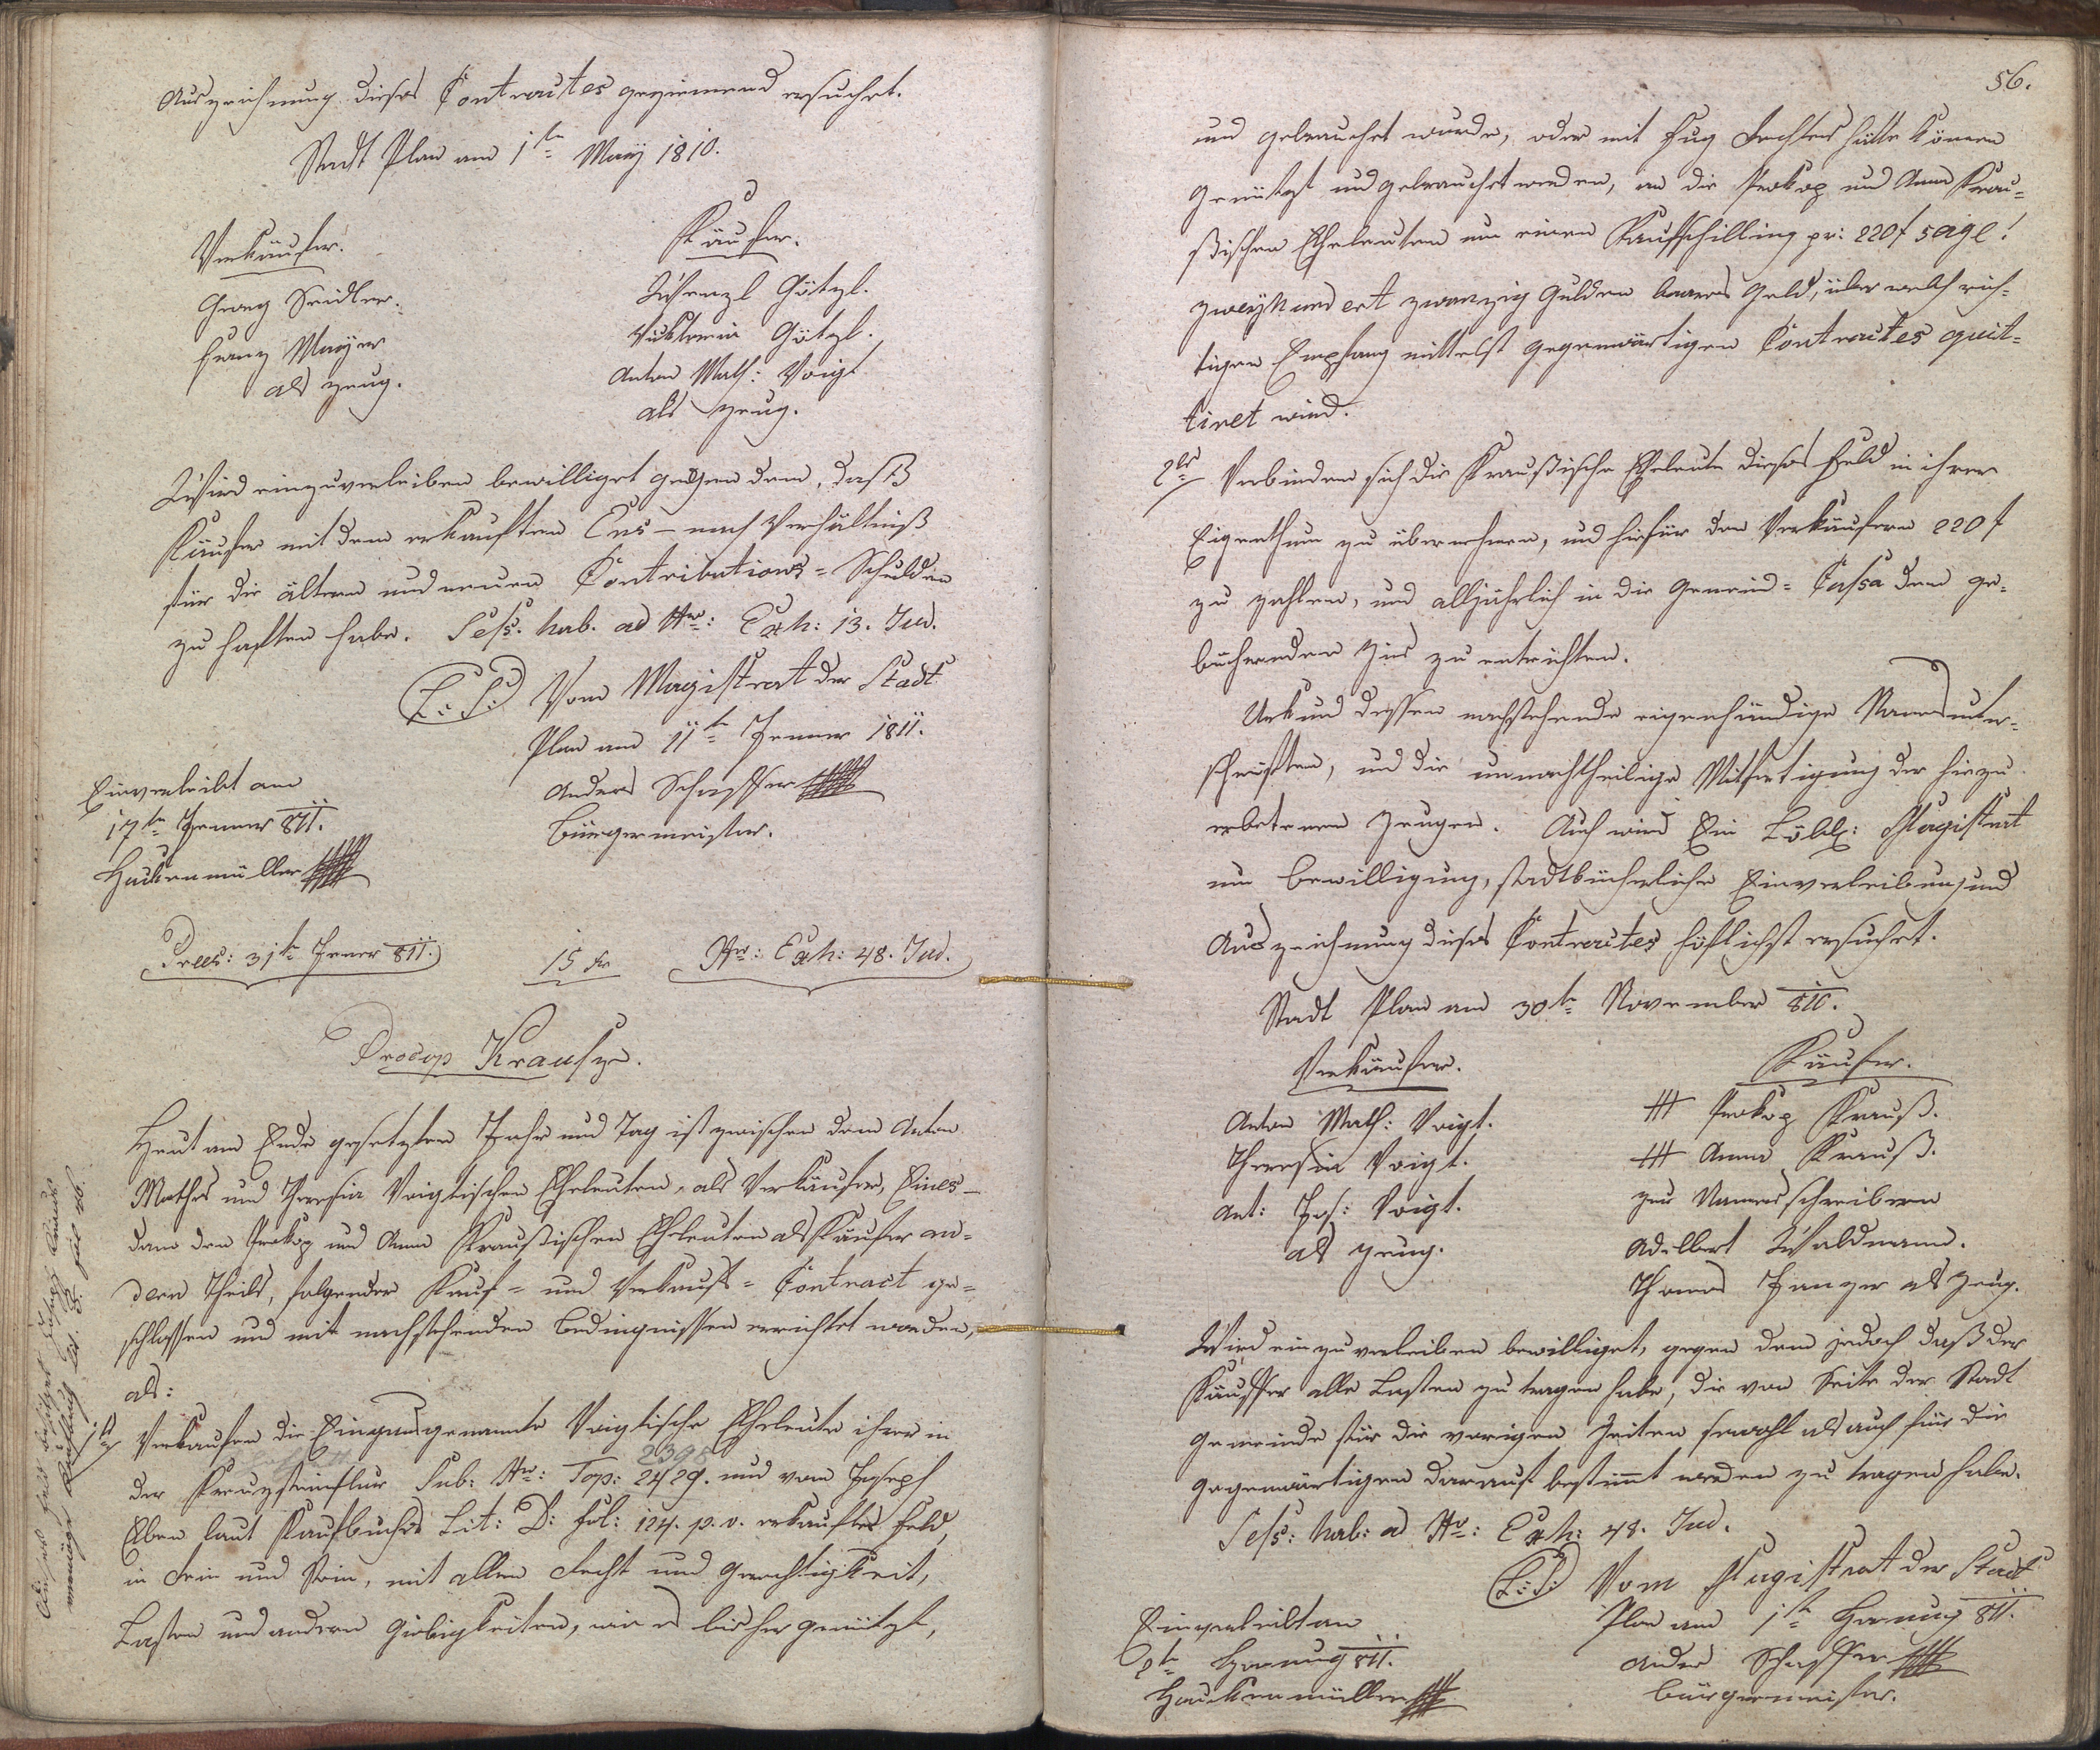 Auszeichnung dieses Contractes geziemend ersuchet.
Stadt Plan am 1tn May 1810.
Verkäufer.
Georg Seidler.
Franz Mayer
als Zeug.
Käufer.
Wenzl Götzl.
Viktoria Götzl.
Anton Math: Voigt
als Zeug.
Wird einzuverleiben bewilliget gegen dem, daß
Käufer mit dem erkauften Ens – nach Verhältniß
für die ältern und neuen Contributions = Schulden
zu haften habe. Sess. hab. ad Nro: Exh: 13. Jud.
L: S: Vom Magistrat der Stadt
Plan am 11tn Jenner 1811.
Anders Schaffer
Bürgermeister.
Einverleibt am
17tn Jenner 811.
Hackenmüller
Prees: 31tn Jener 811.
15 kr
Nro: Exh: 48. Jud.
Procop Krausze.
Heut am Ende gesetzten Jahr und Tag ist zwischen dem Anton
Mathes und Theresia Voigtischen Eheleuten, als Verkäufer, Eines –
dann den Prokop und Anna Kraußischen Eheleuten als Käufer an=
dern Theils, folgender Kauf = und Verkaufs = Contract ge=
schlossen und mit nachstehenden Bedingnissen errichtet worden,
als:
1tns Verkaufen die Eingangsgenannte Voigtische Eheleute ihre in
2398
der Kreuzsteinflur Sub: Nro: Top: 2429. und vom Joseph
Eben laut Kaufbuches Lit: D: fol: 124. p. v. erkauftes Feld,
in Rein und Stein, mit allen Recht und Gerechtigkeit,
Lasten und andern Giebigkeiten, wie es bisher genützt,
Dieses Feld besitzet Joseph Krauß
vermög Kaufbuch Lit. E. fol. 26.
56.
und gebrauchet wurde, oder mit Fug Rechtens hätte können
genützt und gebrauchet werden, an die Prokop und Anna Krau=
ßischen Eheleuten um einen Kaufschilling pr: 220 f sage!
zweyhundert zwanzig Gulden baares Geld, über welch rich=
tigen Empfang mittelst gegenwärtigen Contractes quit=
tiret wird.
2tns Verbinden sich die Kraußische Eheleute dieses Feld in ihrer
Eigenthum zu übernehmen, und hiefür den Verkäufern 220 f
zu zahlen, und alljährlich in die Gemeind = Cassa den ge=
bührenden Zins zu entrichten.
Urkund dessen nachstehende eigenhändige Namensunter=
schriften, und die unnachtheilige Mitfertigung der hiezu
erbetenen Zeugen. Auch wird Ein Löbl: Magistrat
um Bewilligung, stadtbücherliche Einverleibung und
Auszeichnung dieses Contractes höflichst ersuchet.
Stadt Plan am 30tn November 810.
Verkäufer.
Anton Math: Voigt.
Theresia Voigt.
Ant: Jos: Voigt.
als Zeug.
Käufer.
+++ Prokop Krauß.
+++ Anna Krauß.
zur Namensschreibern
Adelbert Waldmann.
Thomas Janzer als Zeug.
Wird einzuverleiben bewilliget, gegen dem jedoch daß der
Käuffer alle Lasten zu tragen habe, die von Seite der Stadt
Gemeinde für die vorigen Zeiten sowohl als auch für die
gegenwärtigen darauf bestimmt werden zu tragen habe.
Sess: hab: ad Nro: Exh: 48. Jud.
L: S: Vom Magistrat der Stadt
Plan am 1tn Hornung 811.
Anders Schaffer
Bürgermeister.
Einverleibt am
2tn Hornung 811.
Hackenmüller